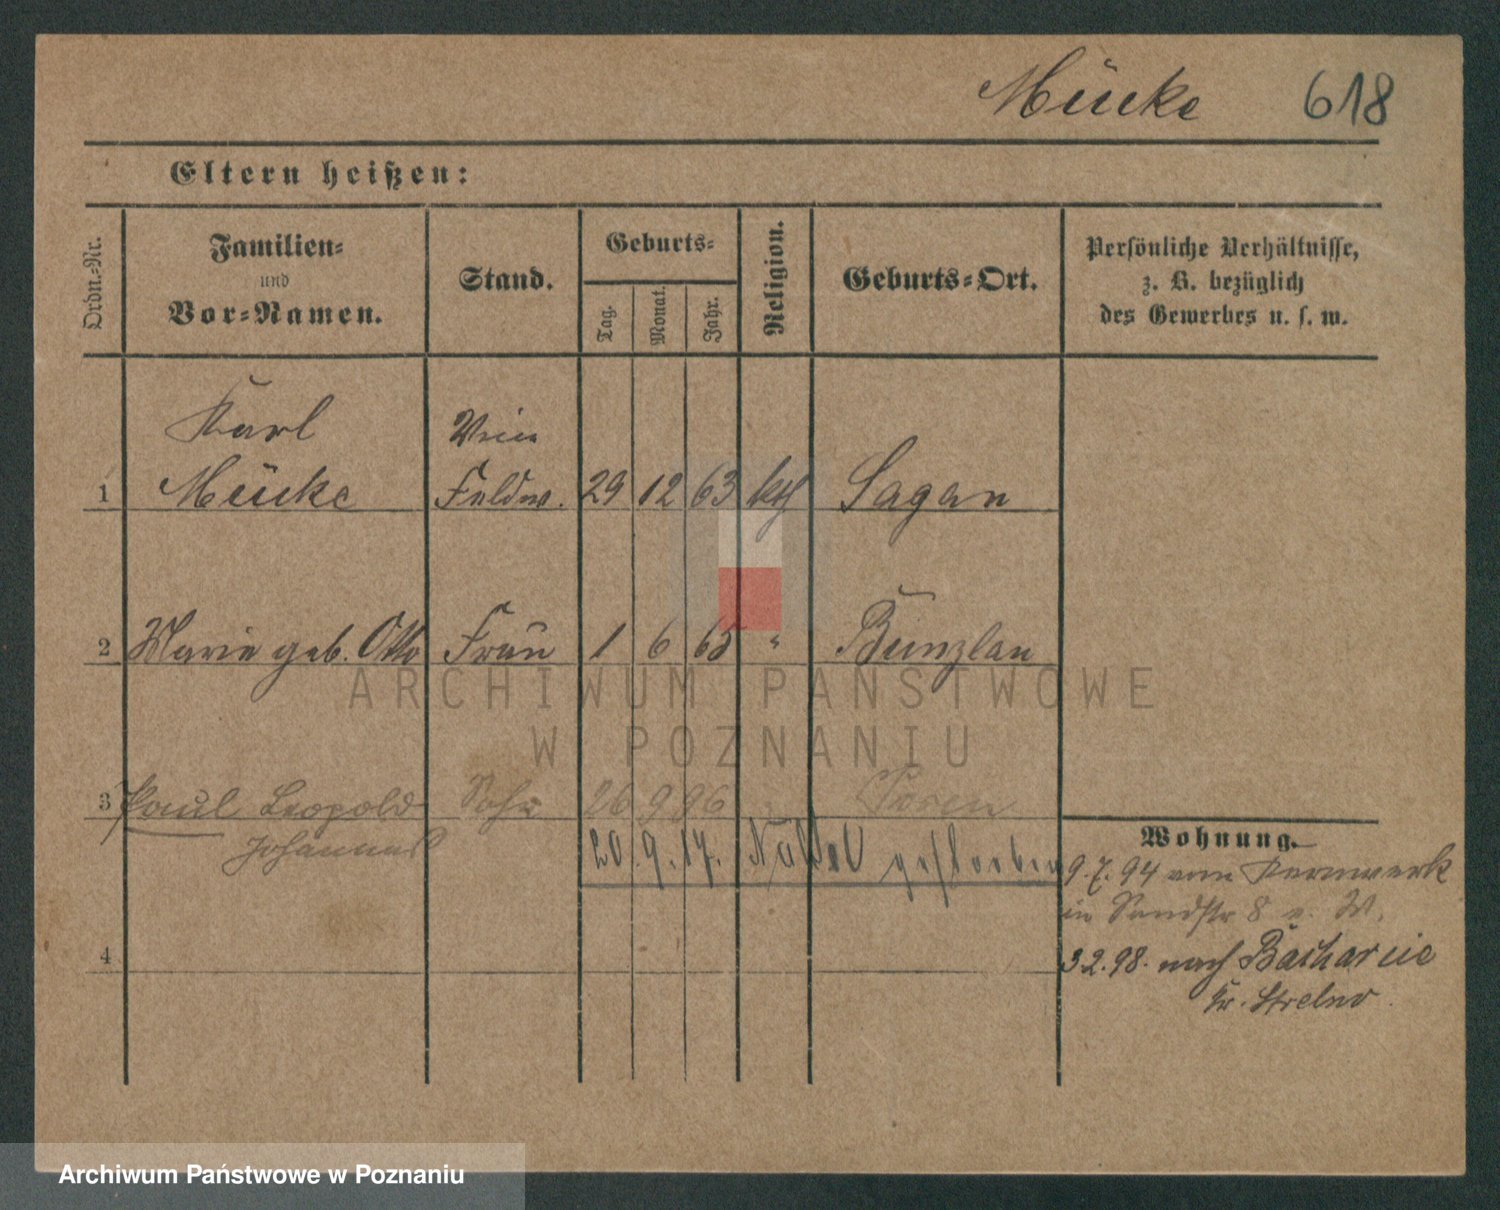 Mücke 618
Eltern heißen:
Ordn.-Nr.
Familien-
und
Vor-Namen.
Stand.
Geburts-
Tag.
Monat.
Jahr.
Religion.
Geburts-Ort.
Persönliche Verhältnisse,
z. B. bezüglich
des Gewerbes u. s. w.
Karl
1 Mücke Feldw. 29 12 63 kth Sagan
2 Marie geb. Otto Frau 1 6 65 " Bunzlau
3 Paul Leopold Sohn 26 9 96 " Posen
Johannes
20. 9. 17. gestorben
4
Wohnung.
9. 7. 94 vom Kernwerk
in Sandstr 8 e. W.
3 2. 98. nach Bacharcie
Kr. Strelno.
ARCHIWUM PAŃSTWOWE
W POZNANIU
Archiwum Państwowe w Poznaniu